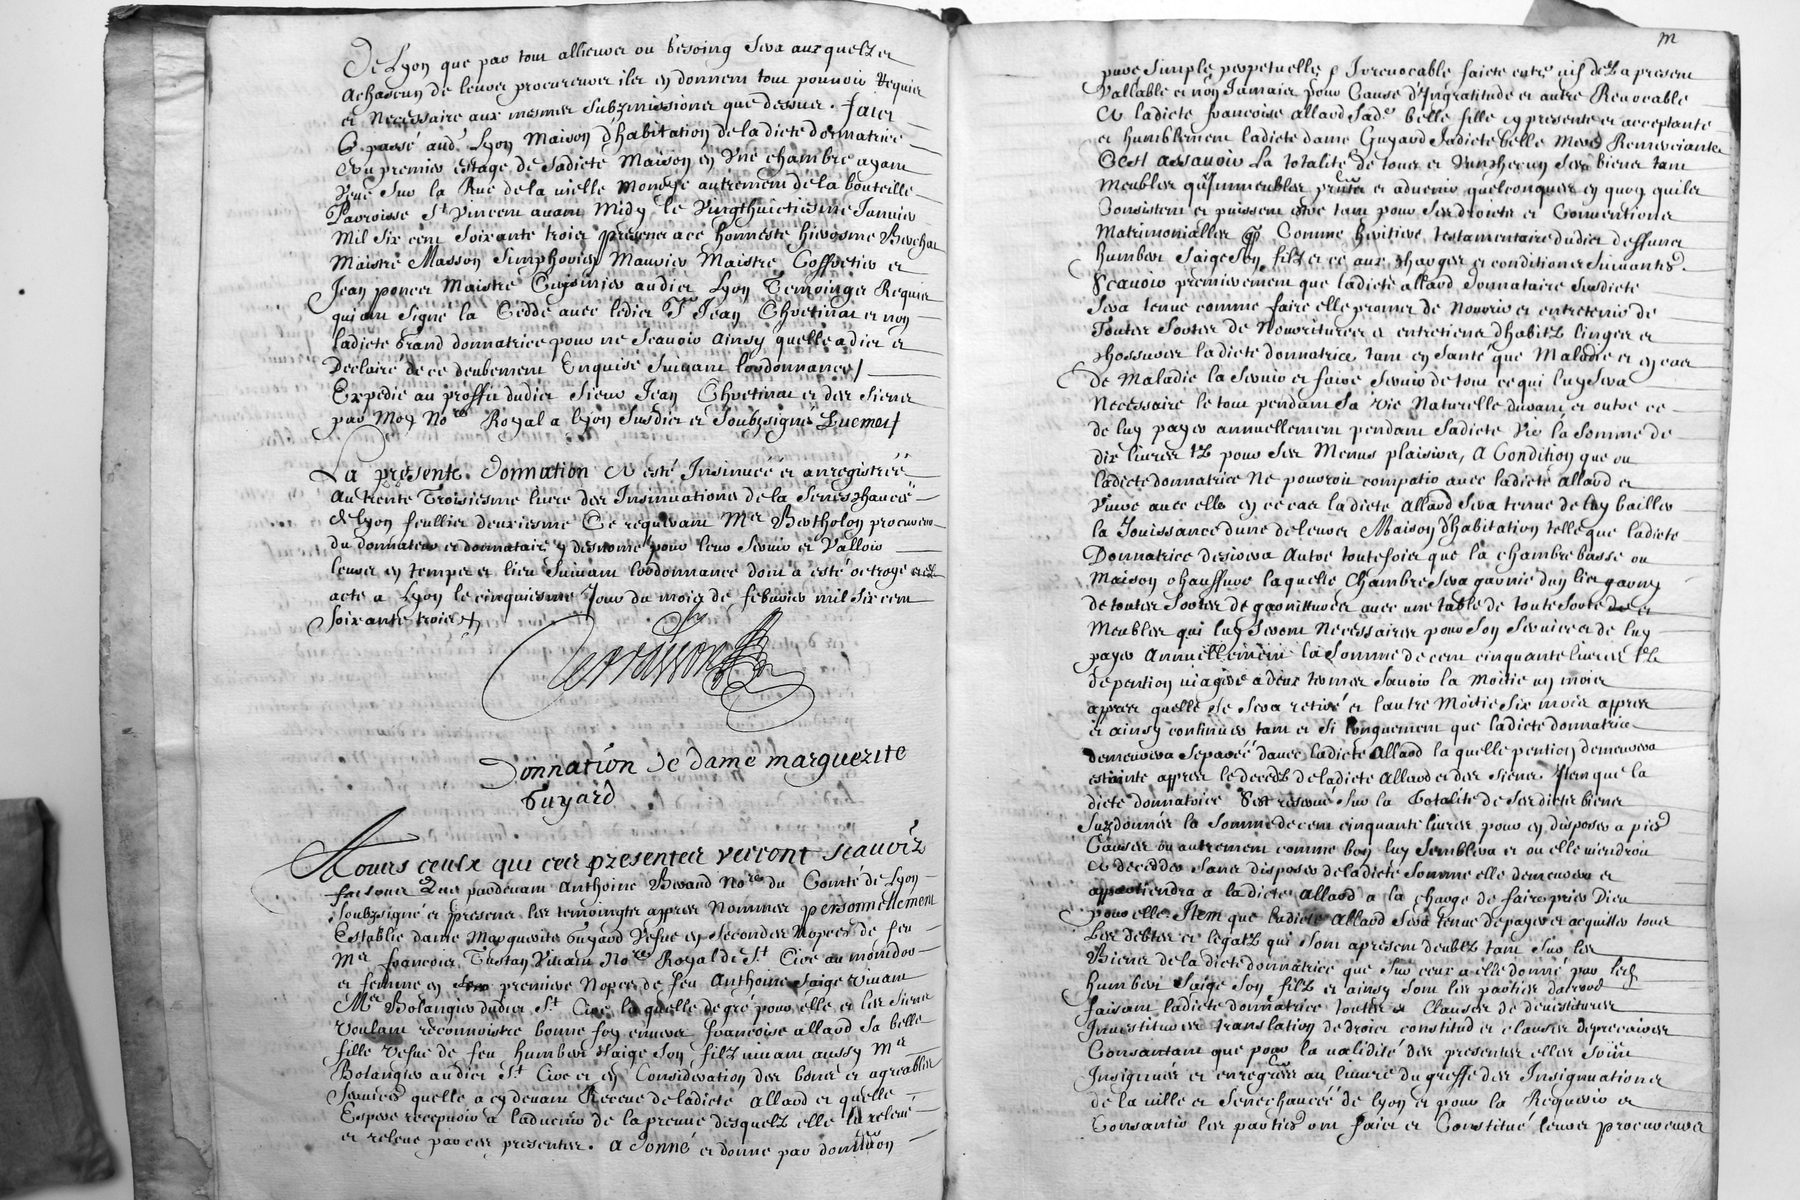 De Lyon que par tout allieurs ou besoing sera auxquelz et
Achascun de leurs procureurs ilz en donnent tout pouvoir Requis
et Necessaire aux mesmes Subzmissions que dessus. faict
& passé aud. Lyon Maison d'habitation de ladicte donnatrice
Au premier estage de sadicte Maison en une chambre ayant
Veue sur la Rue de la vielle monoye autrement de la bouteille
Parroisse St Vincent avant Midy le Vingthuictiesme Janvier
Mil six cent soixante trois presens a ce honneste hierosme Berchat
Maistre Masson Simphorien Mauvier Maistre Coffretier et
Jean poncet Maistre Cuisinier audict Lyon Temoingz Requis
qui ont signé la Cedde avec ledict Sr Jean Chretinat et non
ladicte Grand donnatrice pour ne scavoir Ainsy quelle a dict et
Declairé de ce deubement Enquise suivant lordonnance /
Expedié au proffit dudict Sieur Jean Chretinat et des siens
par Moy Nore Royal a Lyon susdict et soubzsigné
La presente Donnation A esté Insinuéé et anregistréé
Au trente Troisiesme livre des Insinuations de la Seneschaucéé
de Lyon feullier deuxiesme Ce requerant Mes Bertholon procureur
du donnateur et donnataire y desnomé pour leur servir et valloir
leurs en temps et lieu suivant lordonnance dont a esté octroyé
acte a Lyon le cinquiesme Jour du mois de febvrier mil six cent
soixante trois
Donnation de dame marguerite
Guyard
A tous ceulx qui ces presentes verront scavoir
faisons Que pardevant Anthoine Beraud Nore du Comté de Lyon
soubzsigné et presens les temoingtz appres Nommes personnellement
Establie dame Marguerite Guyard Vefve en secondes Nopces de feu
Mer françois Tristan Vivant Nore Royal de St Cire au montdor
et femme en premiere Nopces de feu Anthoine Saige Vivant
Me Bolangier dudict St Cire laquelle de gré pour elle et les siens
Voulant reconnoistre bonne foy envers françoise allard sa belle
fille Vefve de feu humbert Saige son filz vivant aussy Me
Bolangier audict St Cire et en Consideration des bons et agreables
services quelle a cy devant Receus de ladicte Allard et quelle
Espere recepvoir a ladvenir de la preuve desquelz elle la relevé
et releve par ces presentes. A donné et donne par donnation
pure simple perpetuelle & Irrevocable faicte entre vifs delz a present
Vallable et non Jamais pour Cause d'Ingratitude et autre Revocable
A ladicte françoise allard sade belle fille cy presente et acceptante
et humblement ladicte dame Guyard sadicte belle Mere Remerciante
C'est assavoir La totalité de tous et Unchescun ses biens tant
Meubles qu'Immeubles pntz et advenir quelconques en quoy quilz
Consistent et puissent estre tant pour ses droicts et Conventions
Matrimonialles Comme heritiere testamentaire dudict deffunct
humbert Saige son filz et ce aux charges et conditions suivantes.
Scavoir premierement que ladicte allard donnataire susdicte
sera tenue comme faire elle promet de Nourir et entretenir de
Toutes sortes de Nourritures et entretiens d'habitz linges et
chossures ladicte donnatrice tant en santé que Maladie et en cas
de Maladie la servir et faire servir de tout ce qui luy sera
Necessaire le tout pendant sa vie Naturelle durant et outre ce
de luy payer annuellement pendant sadicte vie la somme de
dix livres tz pour ses Menus plaisirs, A Condition que ou
ladicte donnatrice Ne pourroit compatir avec ladicte allard et
Vivre avec elle en ce cas ladicte Allard sera tenue de luy bailler
la Jouissance dune de leurs Maison d'habitation telle que ladicte
Donnatrice desirera Autre toutefois que la chambre basse ou
Maison chauffure laquelle Chambre sera garnie dun lict garny
de toutes sortes de garnittures avec une table de toute sorte de et
Meubles qui luy seront Necessaires pour son service et de luy
payer Annuellement la somme de cent cinquante livres tz
de pention viagere a deux termes savoir la Moitie un mois
appres quelle se sera retiré et lautre Moitie six mois appres
et ainsy continuer tant et si longuement que ladicte donnatrice
demeurera sepparéé davec ladicte Allard laquelle pention demeurera
estainte appres le decedz de ladicte Allard et des siens Item que la
dicte donnatrice s'est reservé sur la Totalité de sesdictz biens
susdonnés la somme de cent cinquante livres pour en disposer a pies
Causes ou autrement comme bon luy semblera et ou elle viendroit
A deceddes sans disposer de ladicte somme elle demeurera et
appartiendra a ladicte Allard a la charge de faire prier Dieu
pour elle. Item que ladicte Allard sera tenue de payer et acquitter tous
Les debtes et legatz qui sont apresent deubtz tant sur les
Biens de ladicte donnatrice que sur ceux a elle donné par led
humbert Saige son filz et ainsy sont les parties d'accord
faisant ladicte donnatrice toutes Clauses de devestitures
Investitures translation de droict constitud et clauses deprecaires
Consantant que pour la validité des presentes elles soint
Insignuées et enregrées au livre du greffe des Insignuations
de la ville et Senechaucéé de Lyon et pour la Requerir et
Consantir les parties ont faict et Constitué leurs procureurs